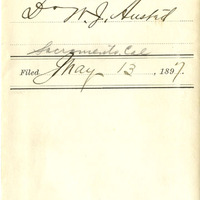 Dr W. J. Austin
Sacramento, Cal
Filed May 13, 1897.